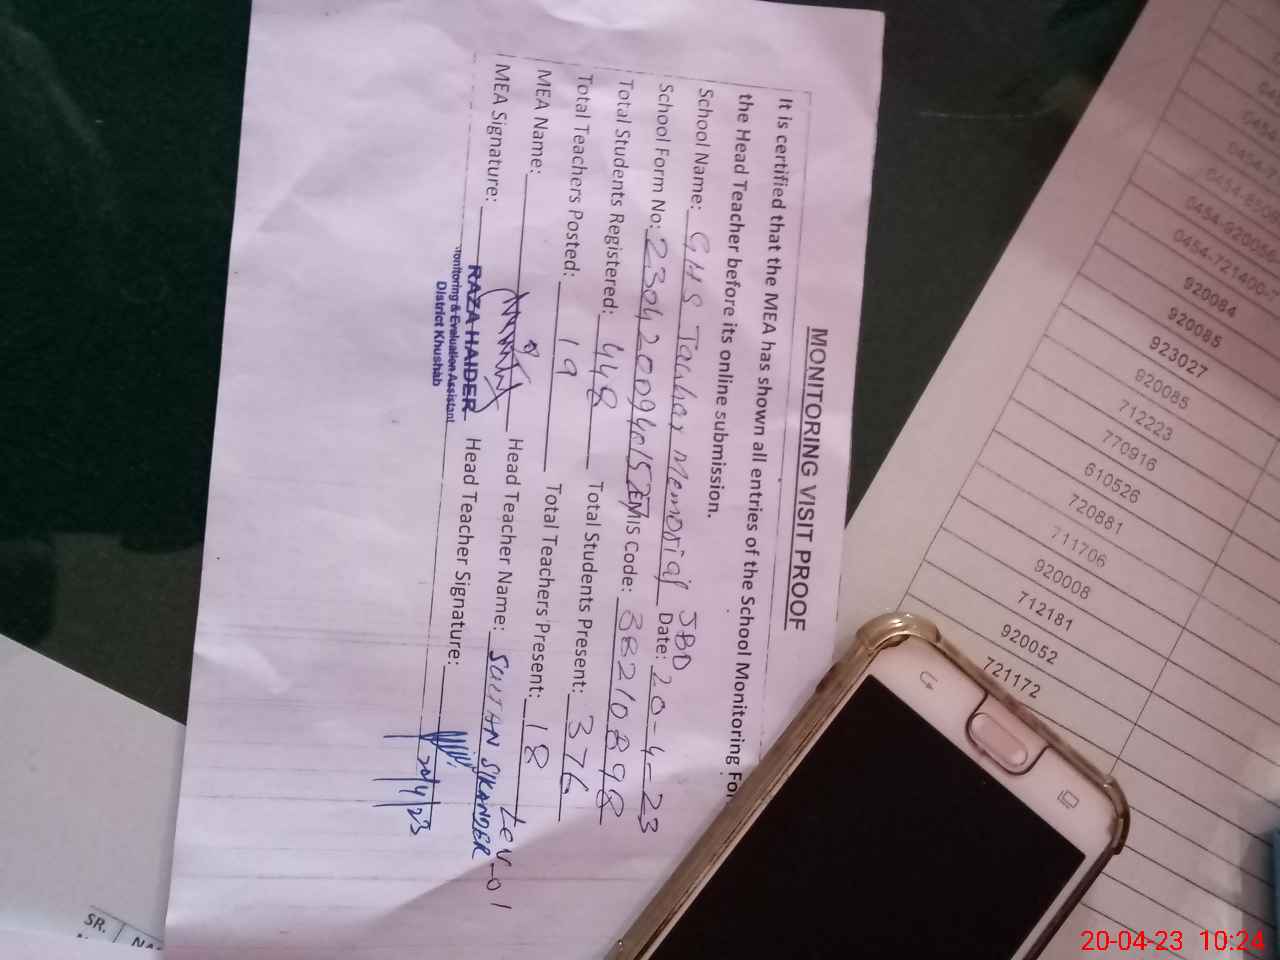 MONITORING VISIT PROOF
It is certified that the MEA has shown all entries of the School Monitoring For
the Head Teacher before its online submission.
School Name: GHS Teacher Memorial JBD Date: 20-4-23
School Form No: EMIS Code: 38210898
Total Students Registered: 448 Total Students Present: 376
Total Teachers Posted: 19 Total Teachers Present: 18 Lev-01
MEA Name: Head Teacher Name: SULTAN SIKANDER
MEA Signature: Head Teacher Signature:
20/4/23
RAZA HAIDER
Monitoring & Evaluation Assistant
District Khushab
0454-920056
0454-721400-
920084
920085
923027
920085
712223
770916
610526
720881
711706
920008
712181
920052
721172
SR.
20-04-23 10:24